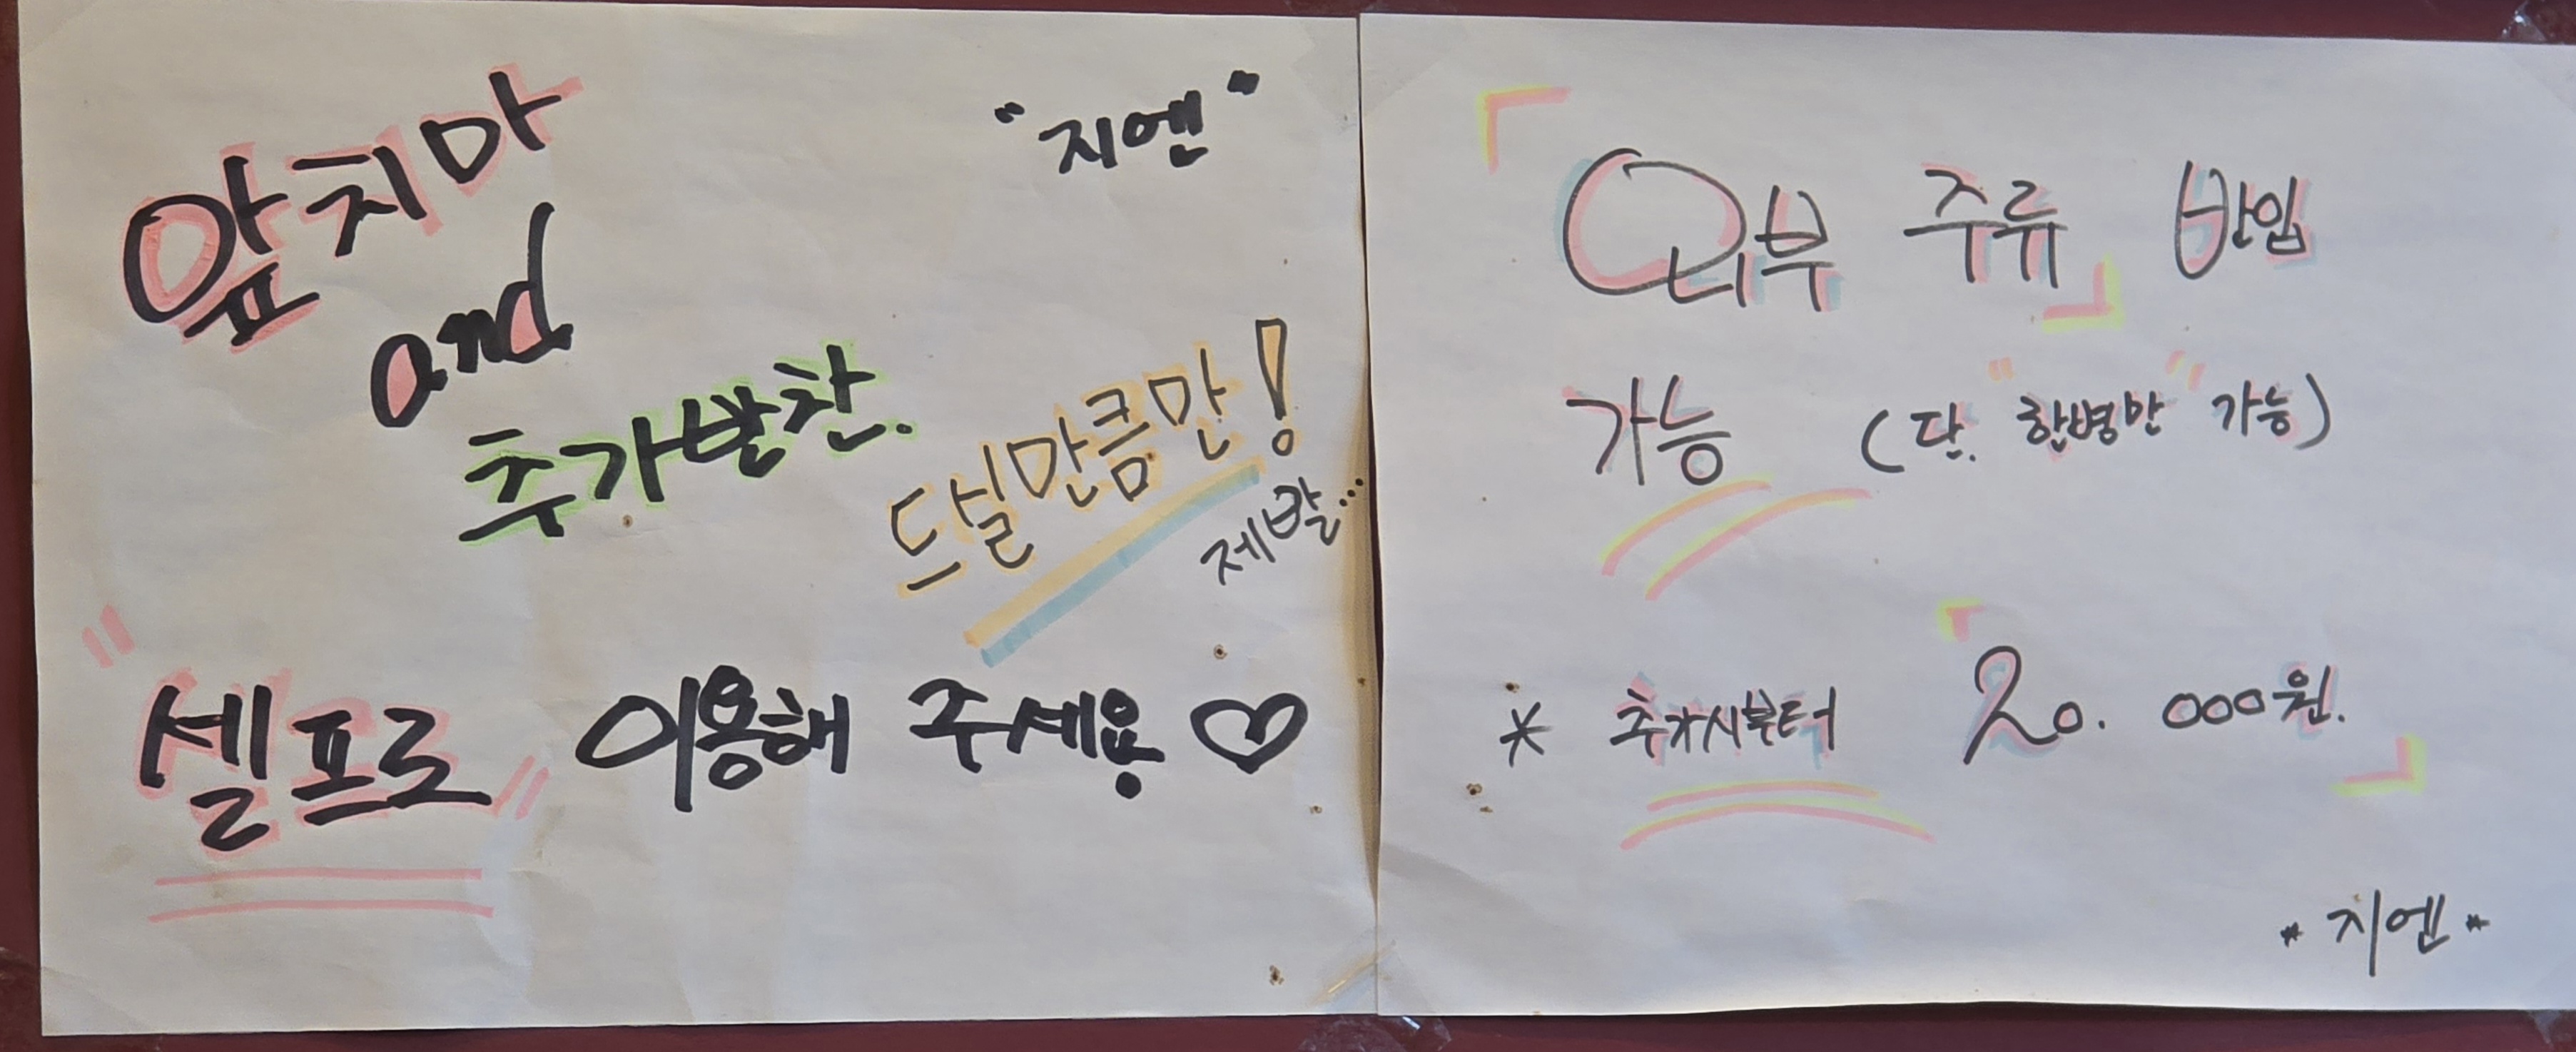 "지엔"
앞치마
and
추가반찬.
드실만큼만!
제발...
"셀프로" 이용해 주세요♡
「외부 주류」 반입
가능 (단. "한병만" 가능)
* 추가시부터 「20.000원.」
* 지엔 *